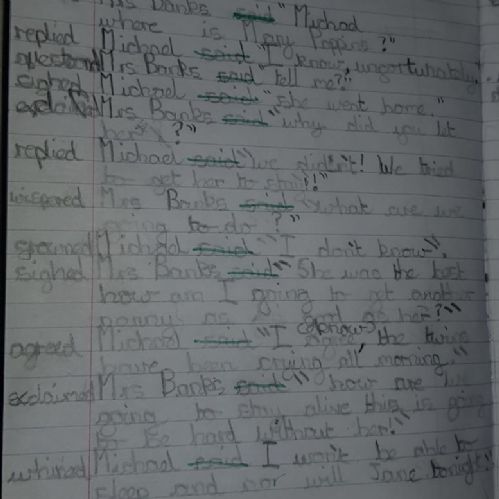 Mrs Banks said "Michael
where is Mary Poppins?"
replied Michael said "I know, unfortunately."
questioned Mrs Banks said "tell me?"
sighed Michael said "She went home."
exclaimed Mrs Banks said "why did you let
her?"
replied Michael said "we didn't! We tried
to get her to stay!"
wispered Mrs Banks said "what are we
going to do?"
groaned Michael said "I don't know",
sighed Mrs Banks said "She was the best
how am I going to get another
nanny as good as her?"
agreed Michael said "I agree, the twins
have been crying all morning."
exclaimed Mrs Banks said "how are we
going to stay alive this is going
to be hard without her!"
whined Michael said I won't be able to
sleep and nor will Jane tonight"